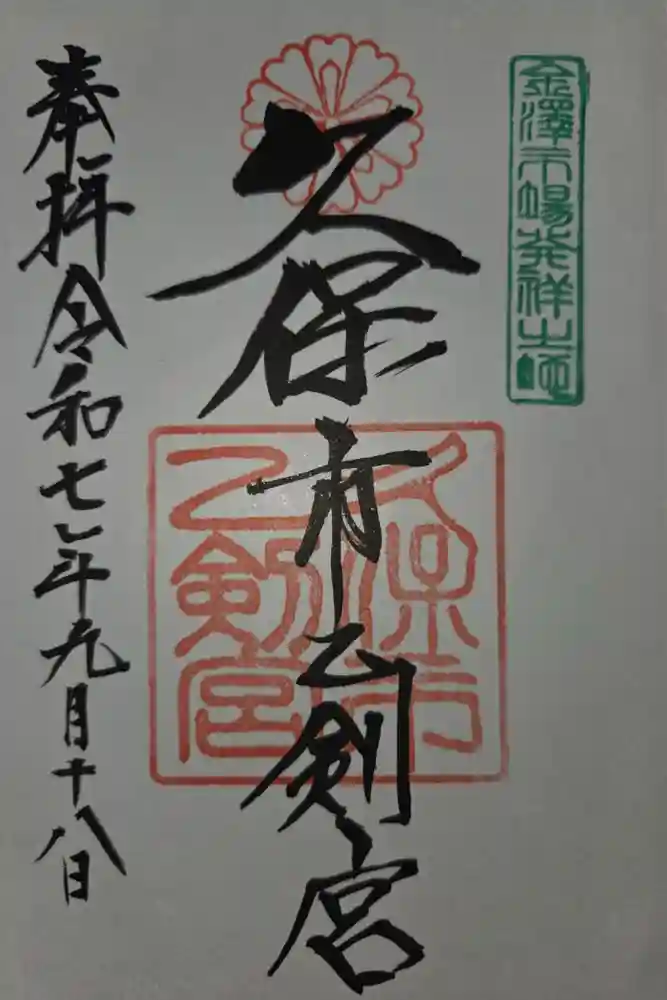 金澤市場発祥之地
久保市乙剣宮
久保市
乙剣宮
奉拝 令和七年九月十八日